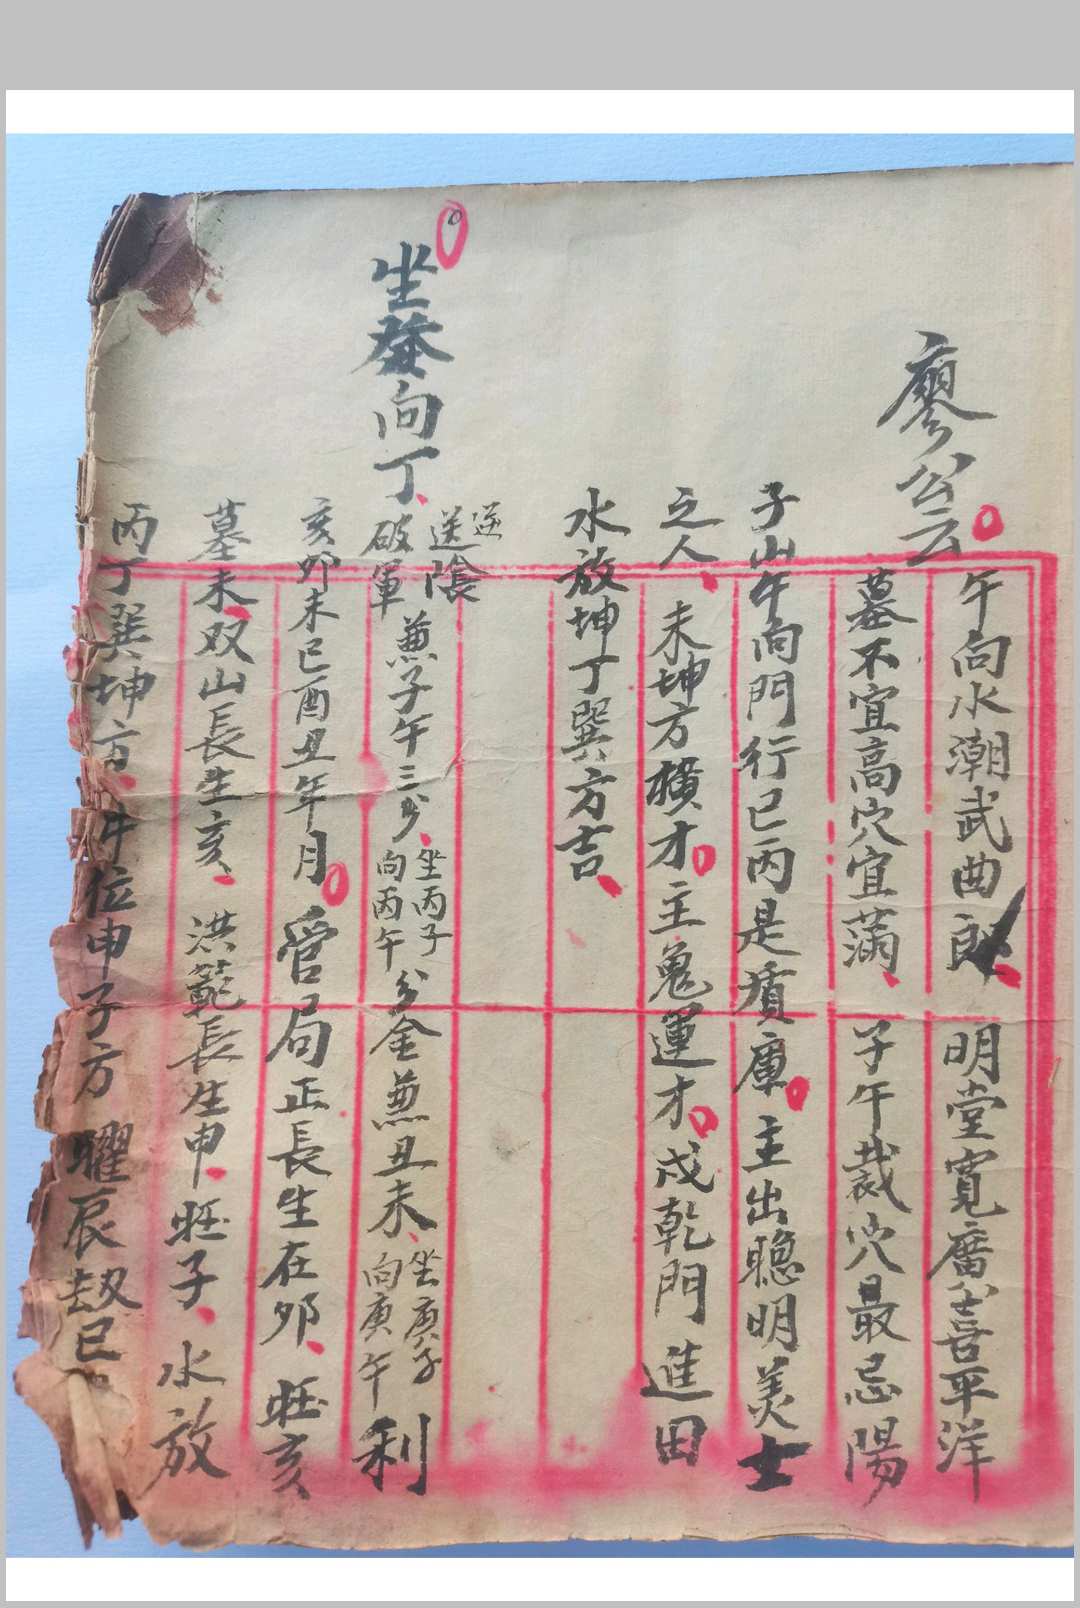 廖公云
午向水潮武曲郎明堂寬廣公喜平洋
墓不宜高穴宜滿子午裁穴最忌陽
子山午向門行巳丙是須庫主出聰明美士
之人未坤方横才主鬼運才戌乾門進田
水放坤丁巽方吉
坐癸向丁
送
送陰
破軍
兼子午三分
坐丙子
向丙午
分金兼丑未
坐庚子
向庚午
利
亥卯未巳酉丑年月官局正長生在卯旺亥
墓未双山長生亥洪範長生申旺子水放
丙丁巽坤方牛位申子方曜辰劫巳